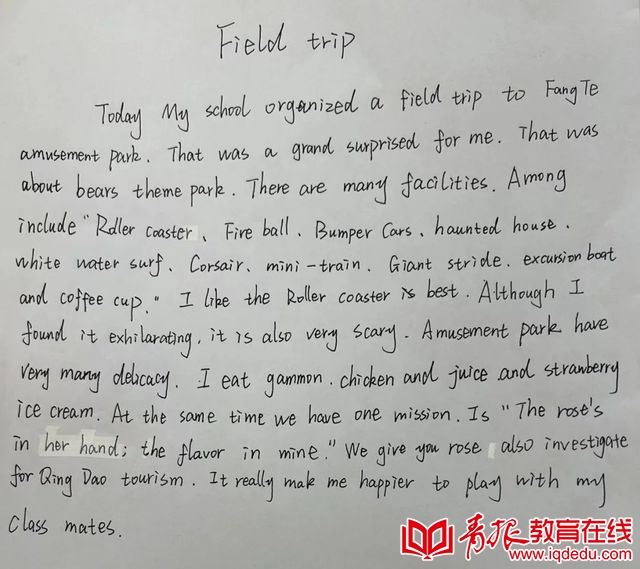 Field trip
Today My school organized a field trip to FangTe
amusement park. That was a grand surprised for me. That was
about bears theme park. There are many facilities. Among
include "Roller coaster、Fire ball、Bumper Cars、haunted house、
white water surf、Corsair、mini-train、Giant stride、excursion boat
and coffee cup." I like the Roller coaster is best. Although I
found it exhilarating, it is also very scary. Amusement park have
very many delicacy. I eat gammon、chicken and juice and strawberry
ice cream. At the same time we have one mission. Is "The rose's
in her hand; the flavor in mine." We give you rose, also investigate
for Qing Dao tourism. It really make me happier to play with my
class mates.
青报教育在线
www.iqdedu.com